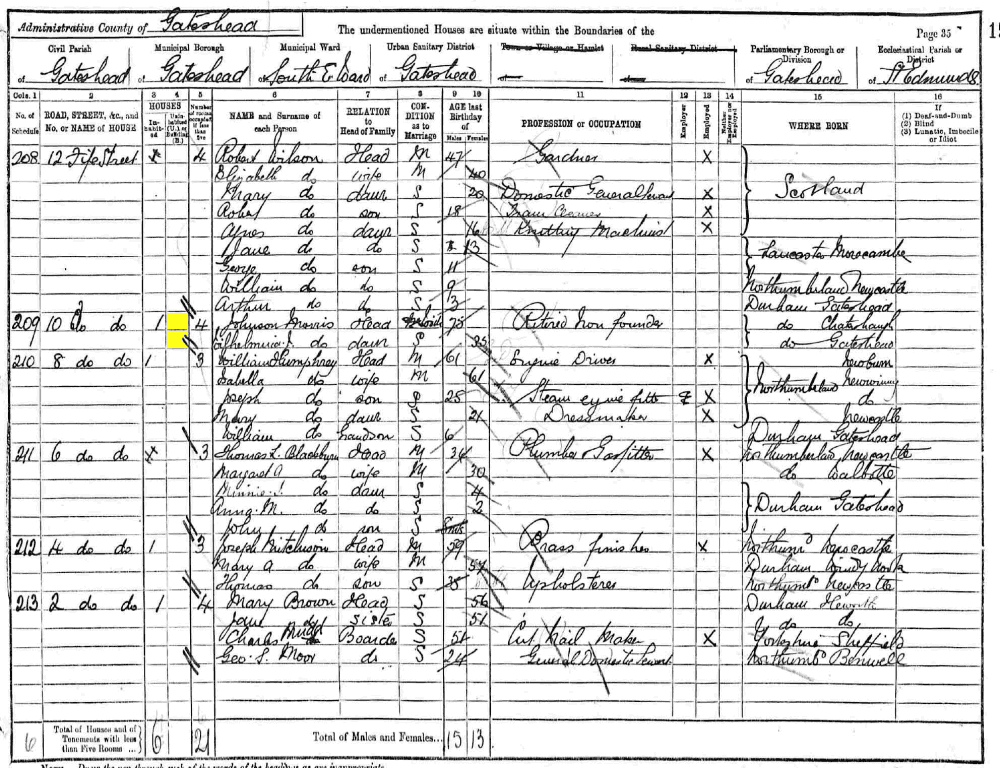 Administrative County of Gateshead
The undermentioned Houses are situate within the Boundaries of the
Page 35
Civil Parish
of Gateshead
Municipal Borough
of Gateshead
Municipal Ward
of South E Ward
Urban Sanitary District
of Gateshead
Town or Village or Hamlet
of
Rural Sanitary District
of
Parliamentary Borough or Division
of Gateshead
Ecclesiastical Parish or District
of St Edmunds
Cols. 1 2 3 4 5 6 7 8 9 10 11 12 13 14 15 16
No. of Schedule
ROAD, STREET, &c., and No. or NAME of HOUSE
HOUSES
Inhabited
Uninhabited (U.) or Building (B.)
Number of rooms occupied if less than five
NAME and Surname of each Person
RELATION to Head of Family
CONDITION as to Marriage
AGE last Birthday of
Males Females
PROFESSION or OCCUPATION
Employer
Employed
Neither Employer nor Employed
WHERE BORN
If (1) Deaf-and-Dumb (2) Blind (3) Lunatic, Imbecile or Idiot
208 12 Fife Street X 4 Robert Wilson Head M 47 Gardner X
Elizabeth do wife M 40
Mary do daur S 20 Domestic General X Scotland
Robert do son S 18 X
Agnes do daur S 16 Machinist X
Jane do do S 13 Lancaster Morecambe
George do son S 11
William do do S 9 Northumberland Newcastle
Arthur do do S 3 Durham Gateshead
209 10 do do 1 4 Johnson Morris Head 75 Retired Iron founder do
do daur S 35 do Gateshead
210 8 do do 1 3 William Humphrey Head M 61 Engine Driver X Newburn
Isabella do wife M 61 Northumberland
Joseph do son S 28 Steam engine fitter X do
Mary do daur S 21 Dressmaker X Newcastle
William do Grandson S 6 Durham Gateshead
211 6 do do X 3 Thomas L. Blackburn Head M 34 Plumber Gasfitter X Northumberland Newcastle
Margaret A do wife M 30 do Walbottle
Minnie J. do daur S 4
Anna M. do do S 2 Durham Gateshead
John do son S
212 4 do do 1 3 Joseph Hitchison Head M 59 Brass finisher X Northumd Newcastle
Mary A do wife M 57 Durham Windy Nook
Thomas do son S 38 Upholsterer Northumd Newcastle
213 2 do do 1 4 Mary Brown Head S 56 Durham Heworth
Jane do sister S 51 do do
Charles Mudd Boarder S 54 Cut Nail Maker X Yorkshire Sheffield
Geo. S. Moor do S 24 General Domestic Servant Northumd Benwell
6 Total of Houses and of Tenements with less than Five Rooms ... 6 21 Total of Males and Females... 15 13